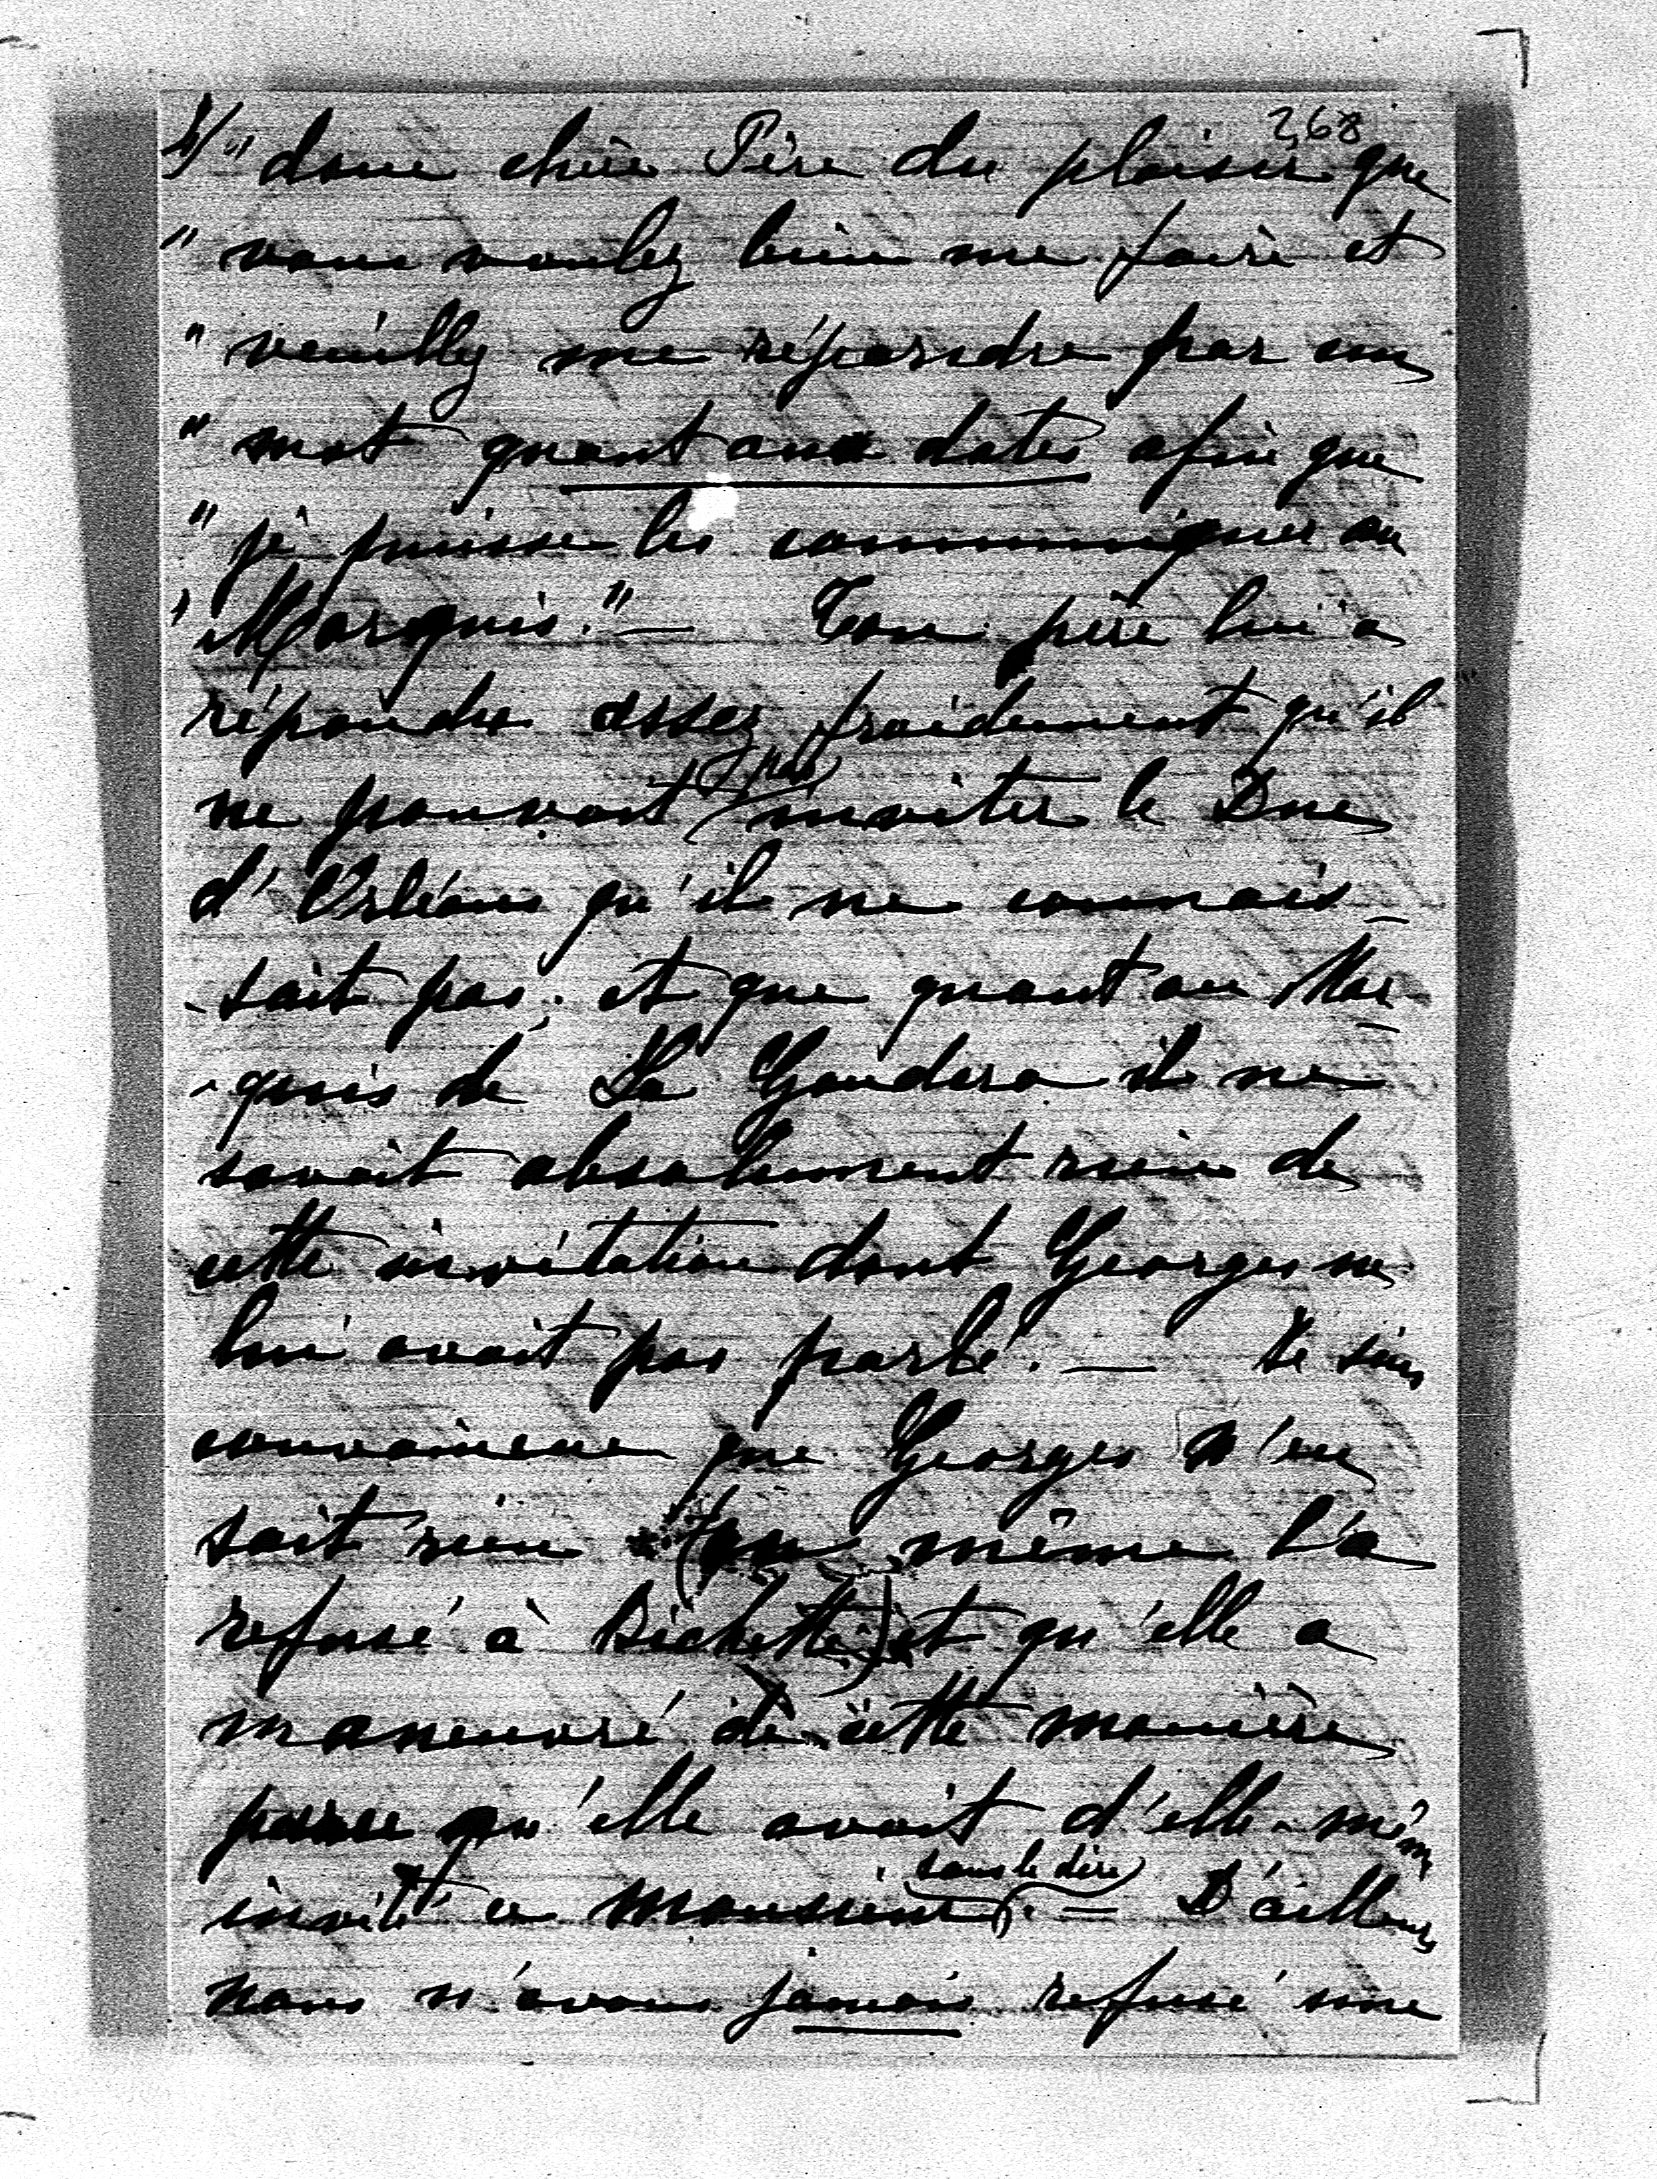 268
" donc chère Père du plaisir que
" vous voulez bien me faire et
" veuillez me répondre par un
" mot quant aux dates afin que
" je puisse les communiquer au
" Marquis." — Ton père lui a
répondre assez froidement qu'il
ne pouvait pas inviter le Duc
d'Orléans qu'il ne connais-
-sait pas. et que quant au Mar-
-quis de La Gandara il ne
savait absolument rien de
cette invitation dont Georges ne
lui avait pas parlé. — Je suis
convaincue que Georges n'en
sait rien même l'a
refusé à Bichette) et qu'elle a
maneuvré de cette manière
parce qu'elle avait d'elle-même
invité ce monsieur sans le dire. — D'ailleurs
nous n'avons jamais refusé une